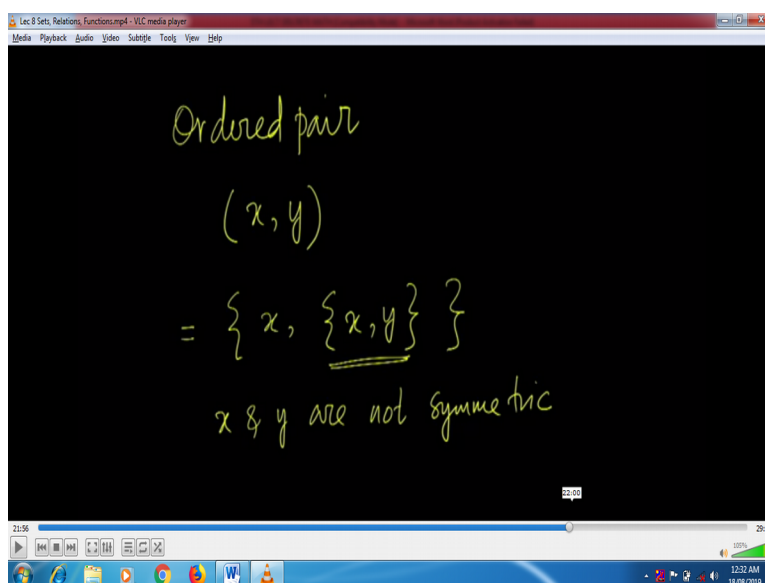 Lec 8 Sets, Relations, Functions.mp4 - VLC media player
Media Playback Audio Video Subtitle Tools View Help
Ordered pair
(x, y)
= { x, {x, y} }
x & y are not symmetric
22:00
21:56 29:
105%
12:32 AM
18/08/2019